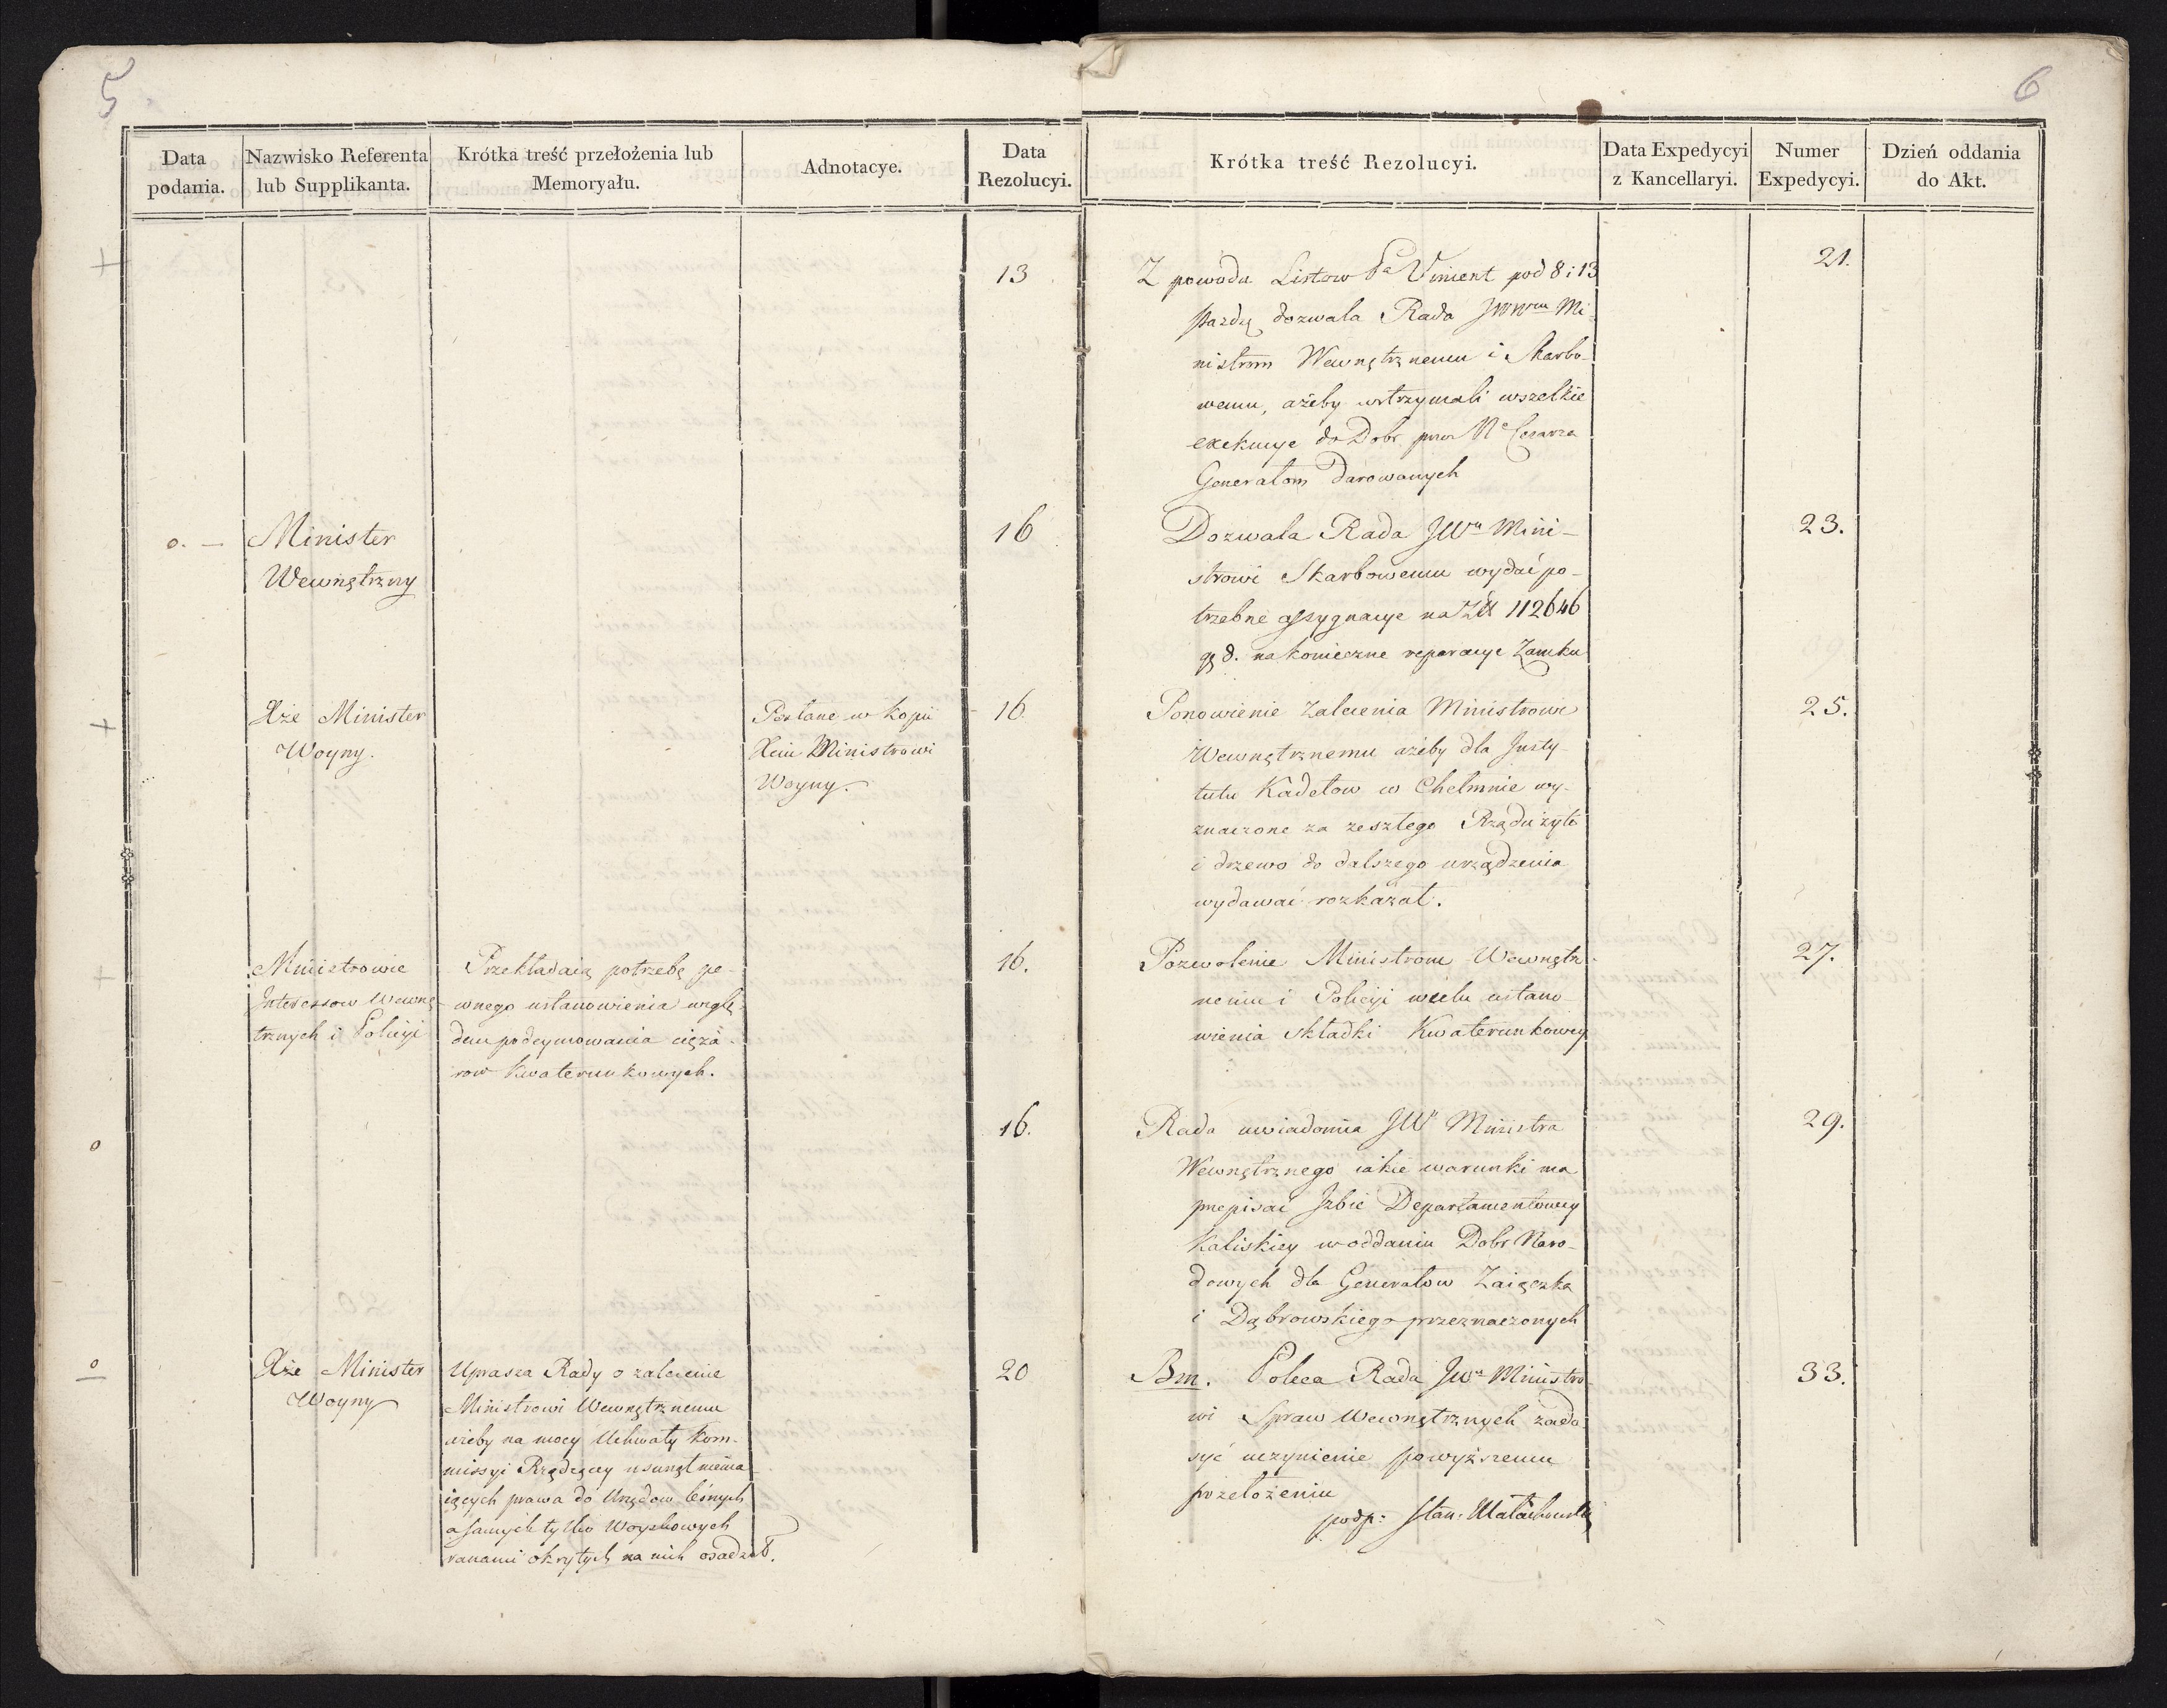 5
6
Data podania.
Nazwisko Referenta lub Supplikanta.
Krótka treść przełożenia lub Memoryału.
Adnotacye.
Data Rezolucyi.
Krótka treść Rezolucyi.
Data Expedycyi z Kancellaryi.
Numer Expedycyi.
Dzień oddania do Akt.
13
Z powodu Listow Pa Vincent pod 8 i 13
Pazdz dozwala Rada JWWm Mi-
nistrom Wewnętrznemu i Skarbo-
wemu, ażeby wstrzymali wszelkie
exekucye do Dobr przez Cesarza
Generałom darowanych
21.
o. —
Minister
Wewnętrzny
16
Dozwala Rada JWu Mini-
strowi Skarbowemu wydać po-
trzebne assygnacye na Złł 112646
gę 8. na konieczne reparacye Zamku
23.
Xże Minister
Woyny.
Posłane w kopii
Xciu Ministrowi
Woyny.
16
Ponowienie Zalecenia Ministrowi
Wewnętrznemu ażeby dla Insty-
tutu Kadetow w Chełmnie wy-
znaczone za zeszłego Rządu żyto
i drzewo do dalszego urządzenia
wydawać rozkazał.
25.
Ministrowie
Interessow Wewnę-
trznych i Policyi
Przekładaią potrzebę pe-
wnego ustanowienia wzglę-
dem podeymowania cięża-
row kwaterunkowych.
16.
Pozwolenie Ministrom Wewnętrz-
nemu i Policyi w celu ustano-
wienia składki Kwaterunkowey
27.
o
16.
Rada uwiadomia JWo Ministra
Wewnętrznego iakie warunki ma
przepisać Izbie Departamentowey
Kaliskiey w oddaniu Dobr Naro-
dowych dla Generałow Zaiączka
i Dąbrowskiego przeznaczonych
29.
o
Xże Minister
Woyny
Uprasza Rady o zalecenie
Ministrowi Wewnętrznemu
ażeby na mocy Uchwały Kom-
missyi Rządzącey usunął niema-
iących prawa do Urzędow leśnych
a samych tylko Woyskowych
ranami okrytych na nich osadzał.
20
Bm. Poleca Rada JWu Ministro
wi Spraw Wewnętrznych zado-
syć uczynienie powyższemu
przełożeniu
podp: Stan: Małachowski
33.